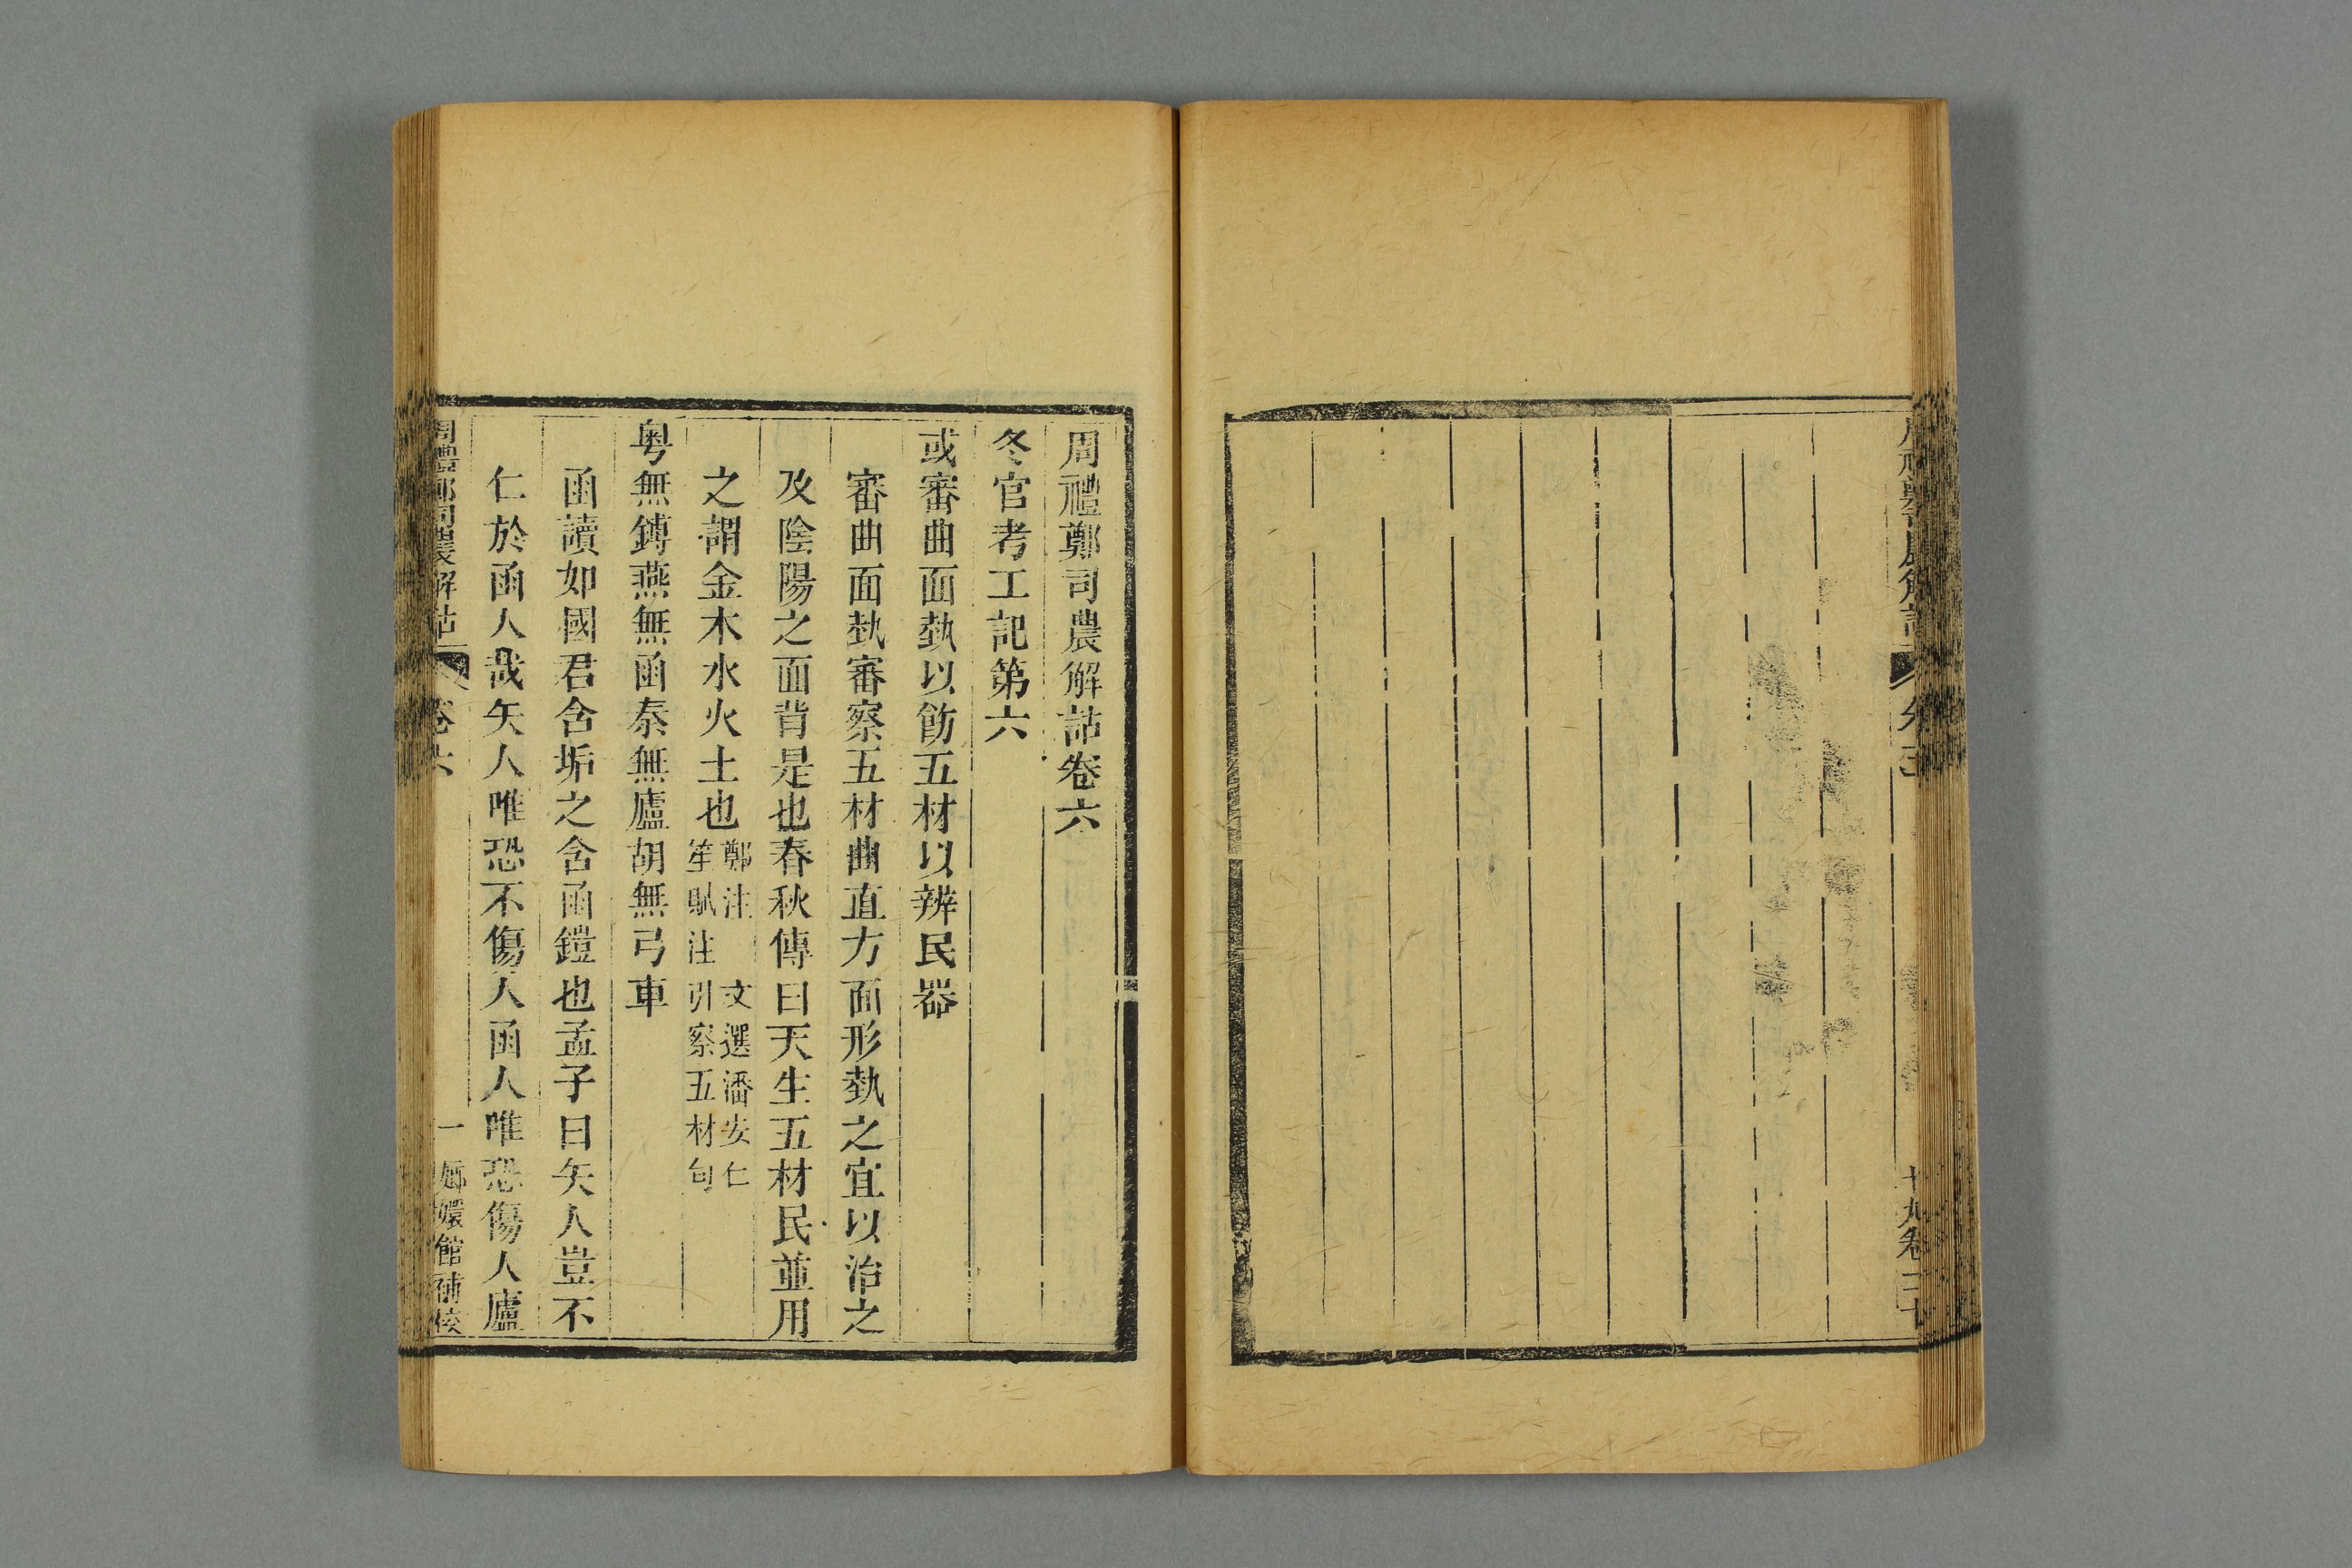 周禮鄭司農解詁卷六
冬官考工記第六
或審曲面埶以飭五材以辨民器
審曲面埶審察五材曲直方面形埶之宜以治之
及陰陽之面背是也春秋傳曰天生五材民並用
之謂金木水火土也
鄭注 文選潘安仁
笙賦注引察五材句
粤無鎛燕無函秦無廬胡無弓車
函讀如國君含垢之含函鎧也孟子曰矢人豈不
仁於函人哉矢人唯恐不傷人函人唯恐傷人廬
周禮鄭司農解詁 卷六 一 嫏嬛館補校